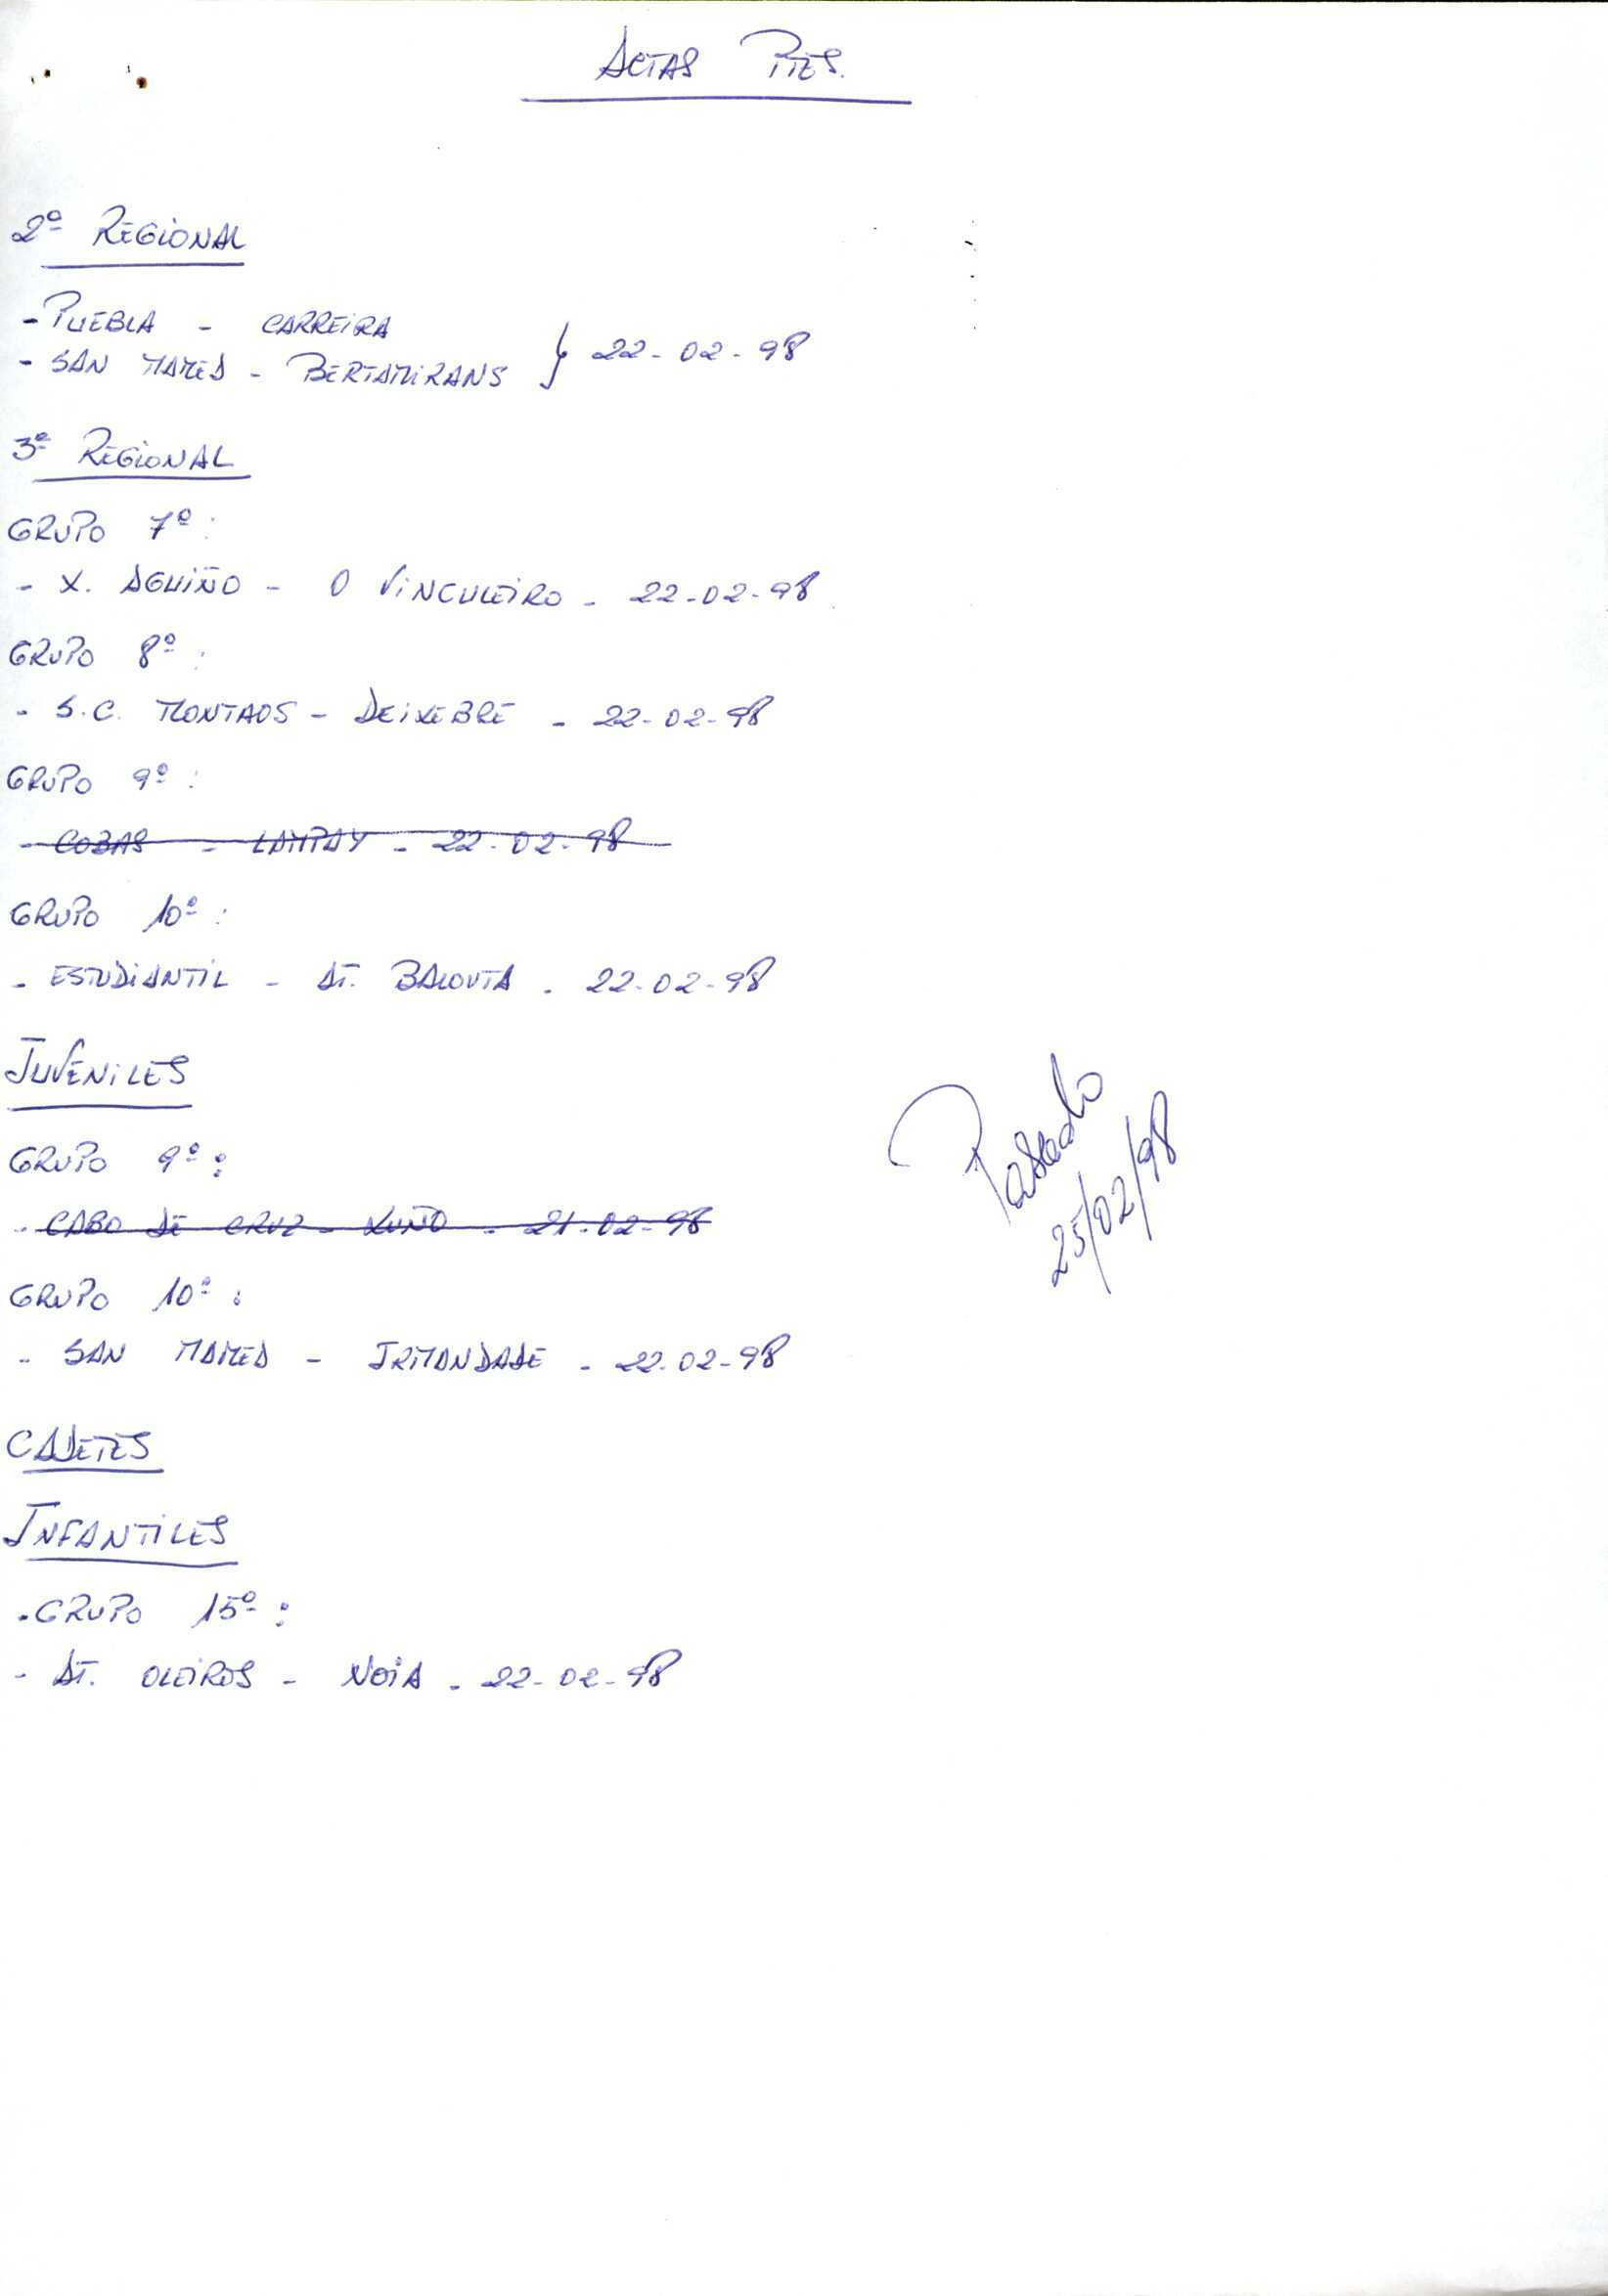 ACTAS PTES.
2ª REGIONAL
- PUEBLA - CARREIRA
- SAN MAMED - BERTAMIRANS } 22-02-98
3ª REGIONAL
GRUPO 7º:
- X. AGUIÑO - O VINCULEIRO - 22-02-98
GRUPO 8º:
- S.C. MONTAOS - DEIXEBRE - 22-02-98
GRUPO 9º:
- COBAS - LAMPAY - 22-02-98
GRUPO 10º:
- ESTUDIANTIL - AT. BALOUTA - 22-02-98
JUVENILES
GRUPO 9º:
- CABO DE CRUZ - XUÑO - 21-02-98
GRUPO 10º:
- SAN MAMED - IRMANDADE - 22-02-98
Pasado
25/02/98
CADETES
INFANTILES
- GRUPO 15º:
- AT. OLEIROS - NOIA - 22-02-98